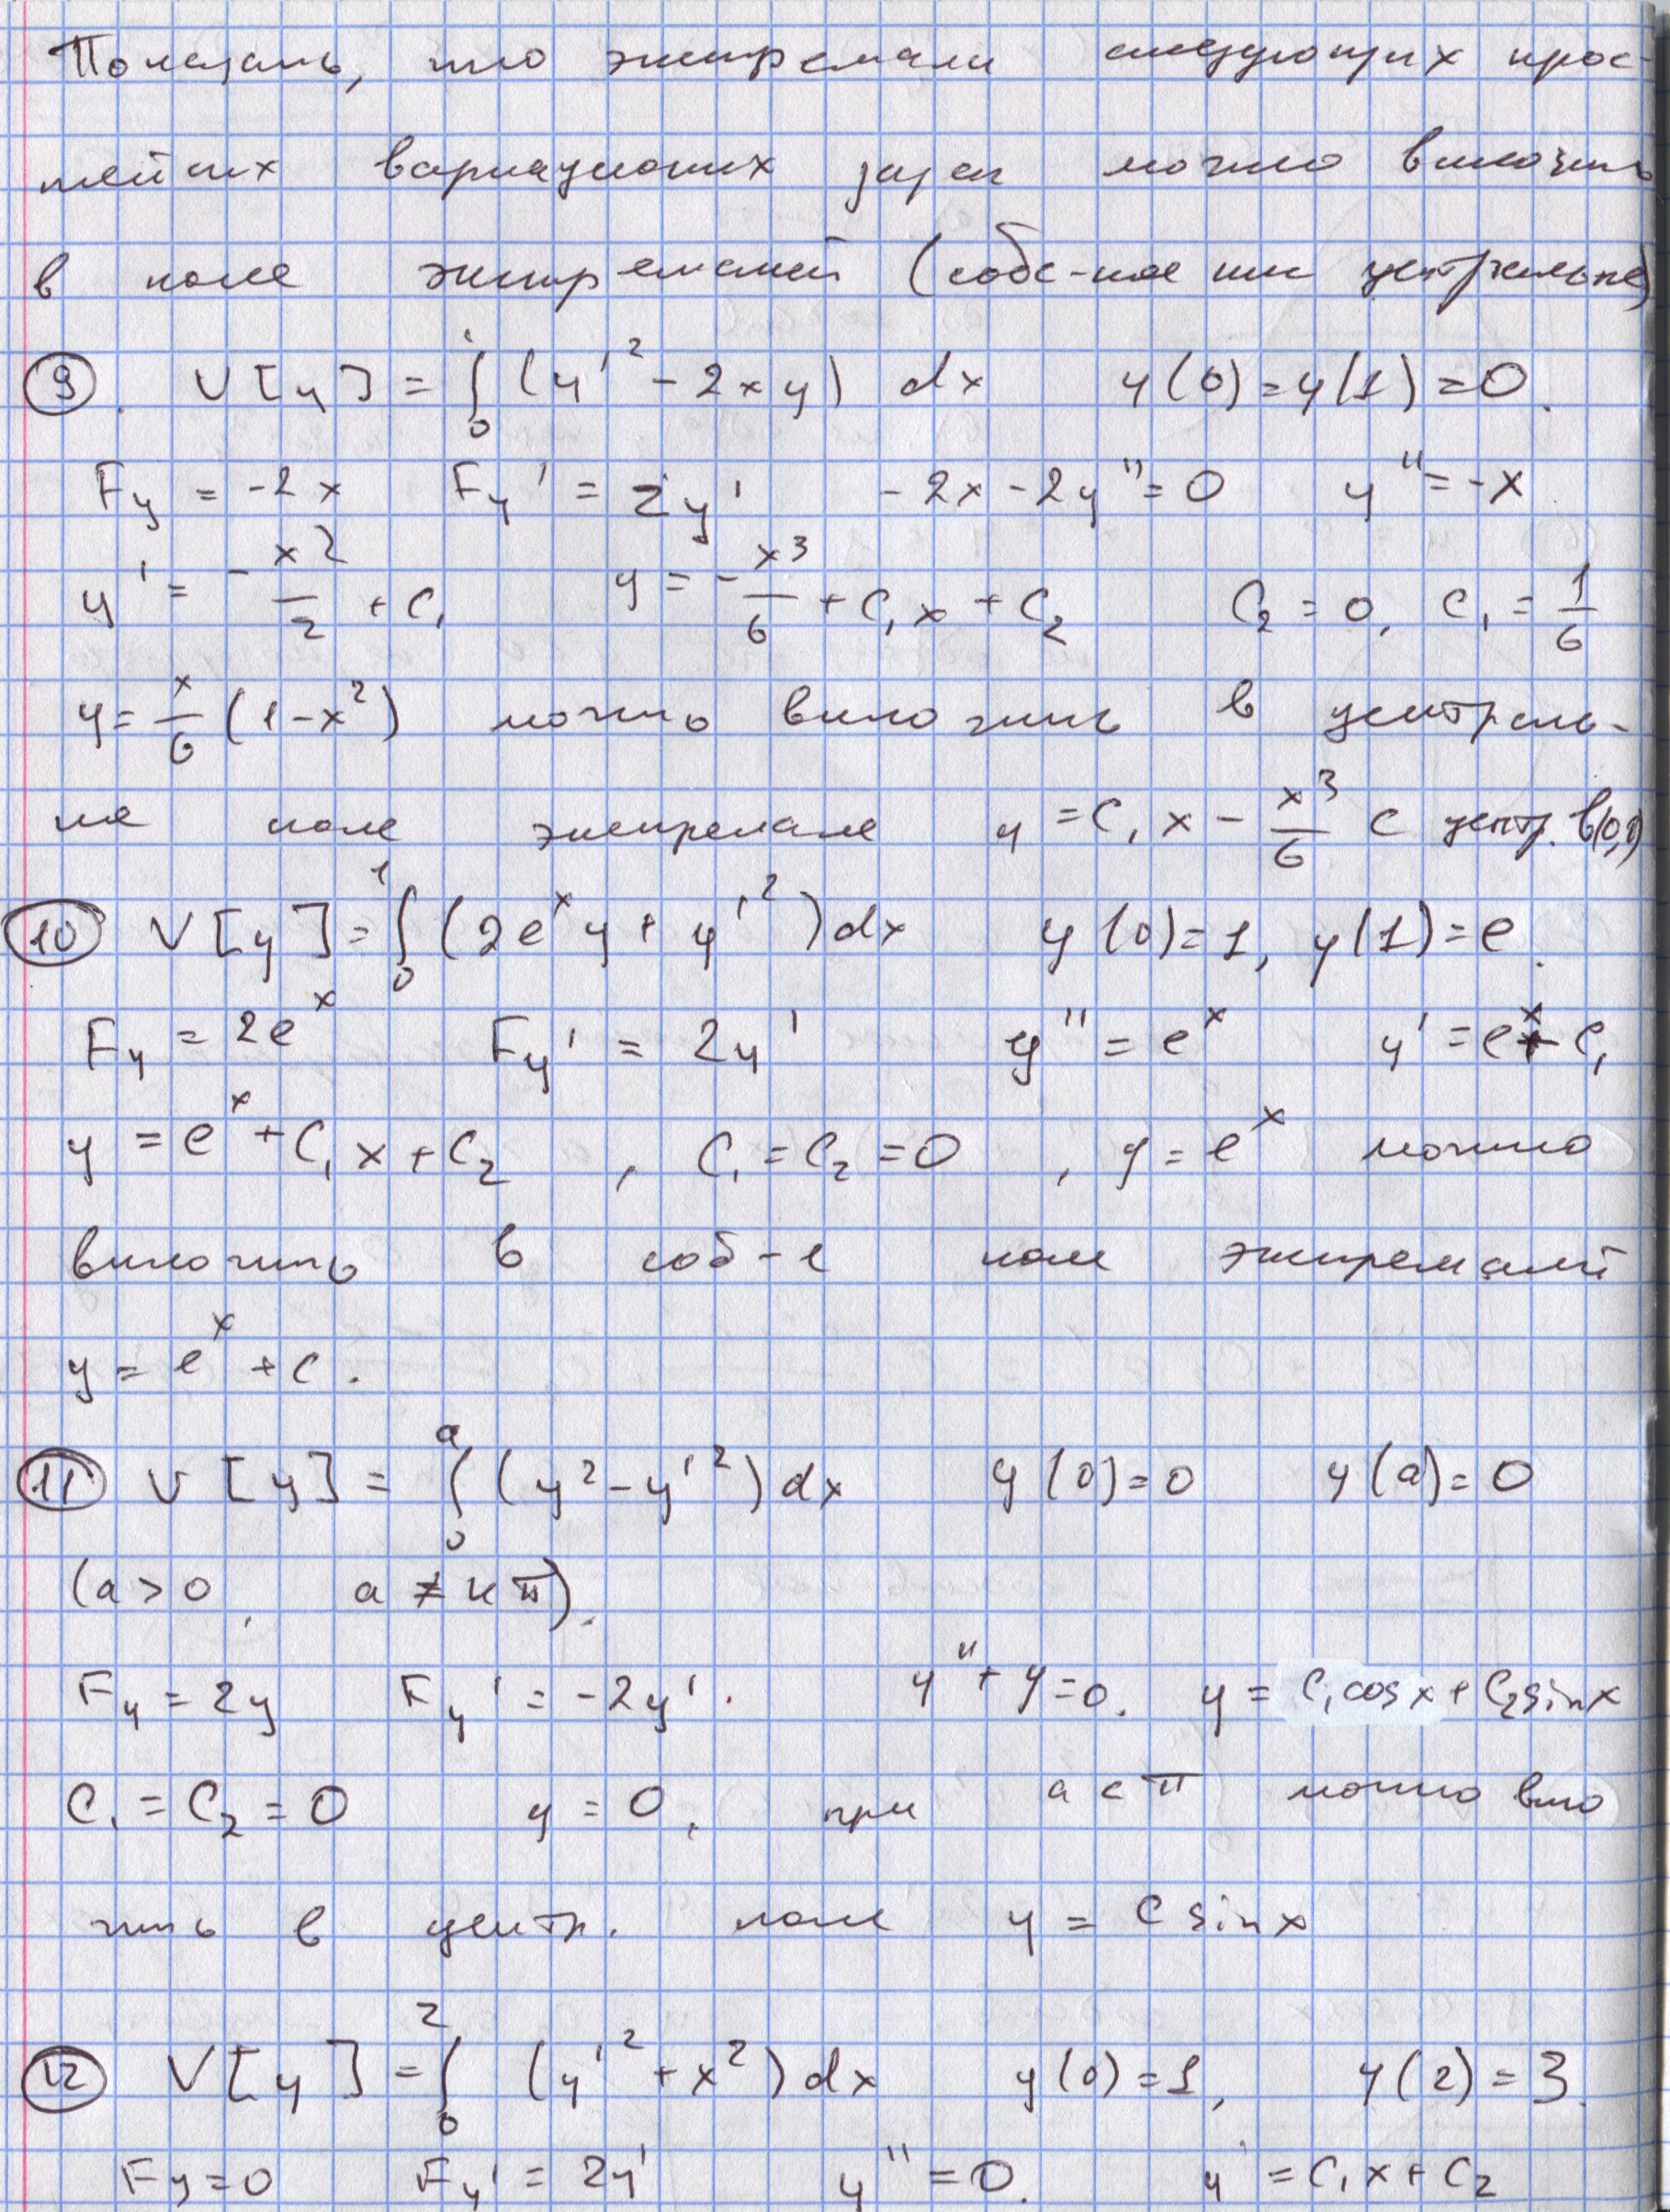 Показать, что экстремали следующих прос-
тейших вариационых задач можно включить
в поле экстремалей (собс-ное или центральное)
9. V[y] = ∫₀¹ (y'² - 2xy) dx y(0)=y(1)=0.
Fy = -2x Fy' = 2y' -2x-2y''=0 y''=-x
y' = -x²/2 + C₁ y = -x³/6 + C₁x + C₂ C₂ = 0, C₁ = 1/6
y = x/6 (1-x²) можно включить в централь-
ное поле экстремале y = C₁x - x³/6 с центр. в(0,0)
10 V[y] = ∫₀¹ (2eˣy + y'²)dx y(0)=1, y(1)=e.
Fy = 2eˣ Fy' = 2y' y'' = eˣ y' = eˣ + C₁
y = eˣ + C₁x + C₂, C₁ = C₂ = 0, y = eˣ можно
включить в соб-е поле экстремалей
y = eˣ + C.
11 V[y] = ∫₀ᵃ (y² - y'²)dx y(0)=0 y(a)=0
(a>0, a ≠ kπ).
Fy = 2y Fy' = -2y'. y''+y=0. y = C₁cosx + C₂sinx
C₁ = C₂ = 0 y = 0, при a<π можно вклю
чить в центр. поле y = C sinx
12 V[y] = ∫₀² (y'² + x²)dx y(0)=1, y(2)=3.
Fy=0 Fy' = 2y' y''=0. y = C₁x + C₂